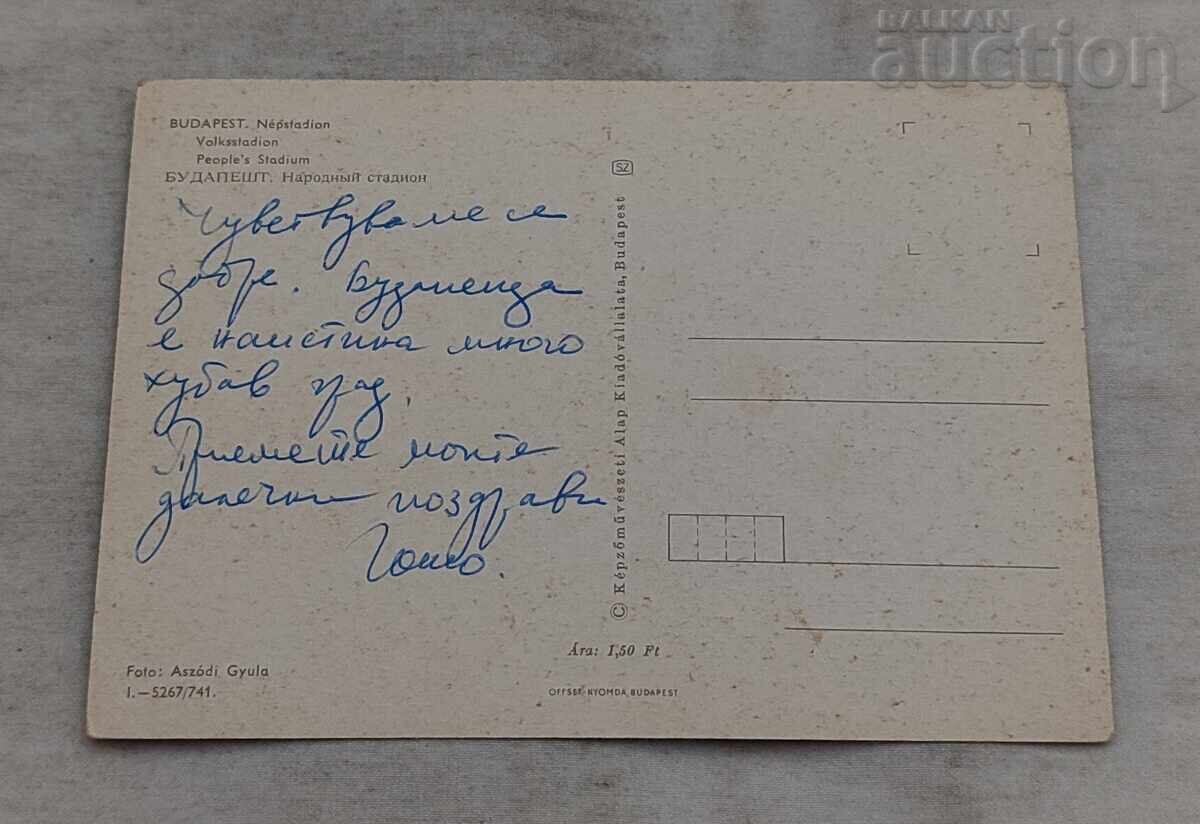 BALKAN
auction
BUDAPEST. Népstadion
Volksstadion
People's Stadium
БУДАПЕШТ. Народный стадион
Чувствуваме се
добре. Будапеща
е наистина много
хубав град
Приемете моите
далечни поздрави
Гошо.
Foto: Aszódi Gyula
I.—5267/741.
SZ
© Képzőművészeti Alap Kiadóvállalata, Budapest
Ára: 1,50 Ft
OFFSET-NYOMDA, BUDAPEST